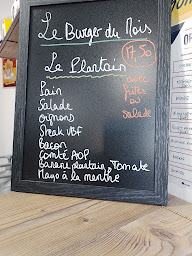 Le Burger du Mois
Le Plantain
17,50
avec
frites
ou
salade
Pain
Salade
oignons
Steak VBF
Bacon
Comté AOP
Banane plantain, Tomate
Mayo à la menthe